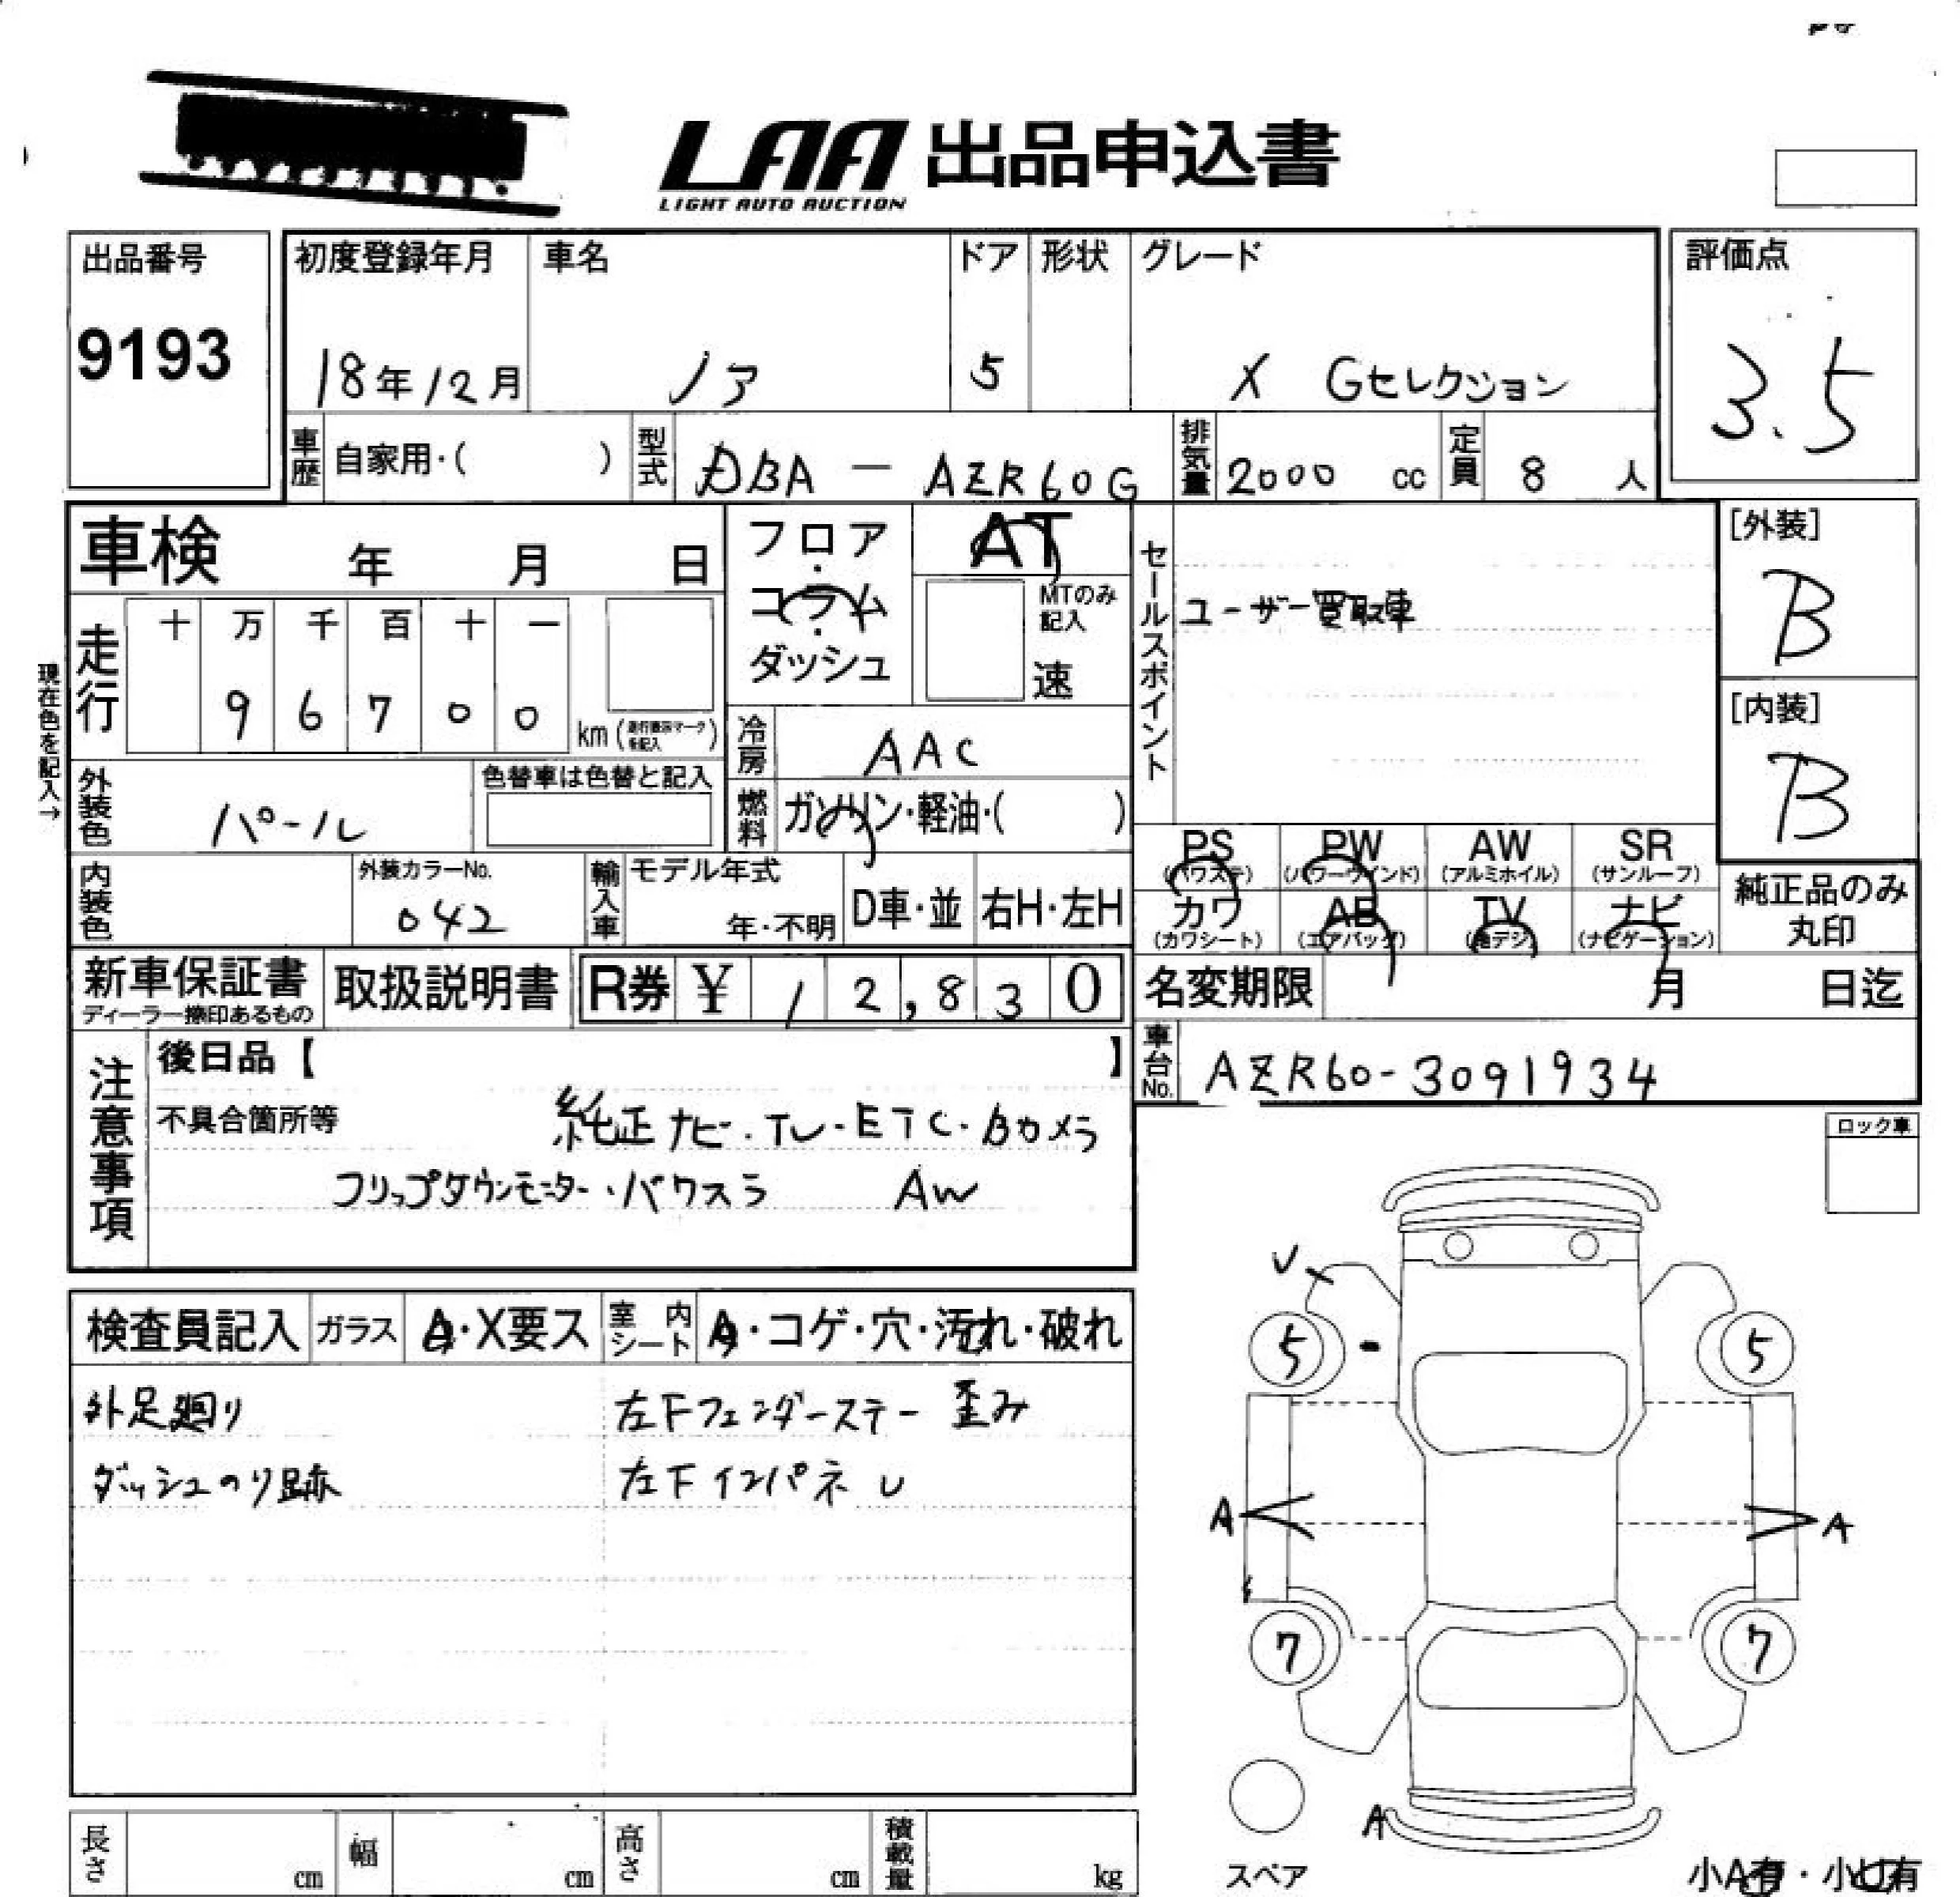 LAA 出品申込書
LIGHT AUTO AUCTION
出品番号
9193
初度登録年月
18年12月
車名
ノア
ドア
5
形状
グレード
X Gセレクション
評価点
3.5
車歴
自家用・( )
型式
DBA - AZR60G
排気量
2000 cc
定員
8 人
車検 年 月 日
フロア
・
コラム
・
ダッシュ
AT
MTのみ
記入
速
セールスポイント
ユーザー買取車
[外装]
B
[内装]
B
現在色を記入→
走行
十 万 千 百 十 一
9 6 7 0 0
km (走行表示マークを記入)
冷房
AAC
外装色
パール
色替車は色替と記入
燃料
ガソリン・軽油・( )
PS
(パワステ)
PW
(パワーウインド)
AW
(アルミホイル)
SR
(サンルーフ)
カワ
(カワシート)
AB
(エアバッグ)
TV
(地デジ)
ナビ
(ナビゲーション)
純正品のみ
丸印
内装色
外装カラーNo.
042
輸入車
モデル年式
年・不明
D車・並
右H・左H
新車保証書
ディーラー捺印あるもの
取扱説明書
R券 ¥ 12,830
名変期限 月 日迄
車台No.
AZR60-3091934
注意事項
後日品【 】
不具合箇所等
純正ナビ・TV・ETC・Bカメラ
フリップダウンモニター・パワスラ AW
ロック車
検査員記入
ガラス
A・X要ス
室内シート
A・コゲ・穴・汚れ・破れ
外足廻り
左Fフェンダーステー 歪み
ダッシュのり跡
左Fインパネ U
U
5
5
A
A
7
7
A
スペア
小A有・小U有
長さ
cm
幅
cm
高さ
cm
積載量
kg